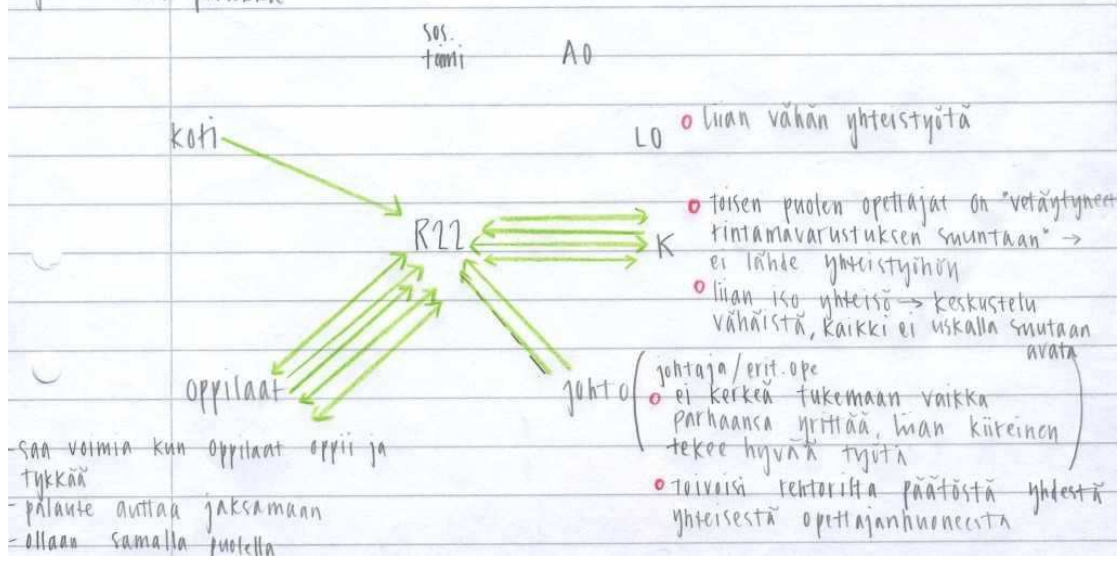 sos.
tømi
AO
koti
LO
o liian vähän yhteistyötä
R22
K
o toisen puolen opettajat on "vetäytyneet
rintamavarustuksen suuntaan" →
ei lähde yhteistyöhön
o liian iso yhteisö → keskustelu
vähäistä, kaikki ei uskalla suutaan
avata
oppilaat
johto
johtaja/erit.ope
o ei kerkeä tukemaan vaikka
parhaansa yrittää, liian kiireinen
tekee hyvää työtä
o toivoisi rehtorilta päätöstä yhdestä
yhteisestä opettajanhuoneesta
-saa voimia kun oppilaat oppii ja
tykkää
- palaute auttaa jaksamaan
- ollaan samalla puolella